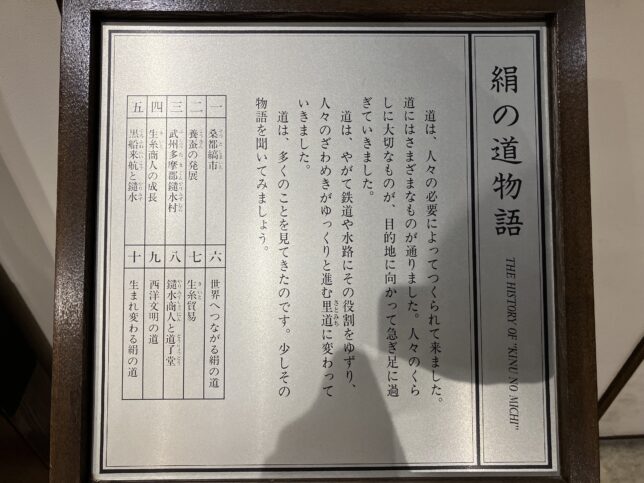 絹の道物語
THE HISTORY OF "KINU NO MICHI"
道は、人々の必要によってつくられて来ました。
道にはさまざまなものが通りました。人々のくら
しに大切なものが、目的地に向かって急ぎ足に過
ぎていきました。
道は、やがて鉄道や水路にその役割をゆずり、
人々のざわめきがゆっくりと進む里道に変わって
いきました。
道は、多くのことを見てきたのです。少しその
物語を聞いてみましょう。
一 桑都縞市
二 養蚕の発展
三 武州多摩郡鑓水村
四 生糸商人の成長
五 黒船来航と鑓水
六 世界へつながる絹の道
七 生糸貿易
八 鑓水商人と道了堂
九 西洋文明の道
十 生まれ変わる絹の道